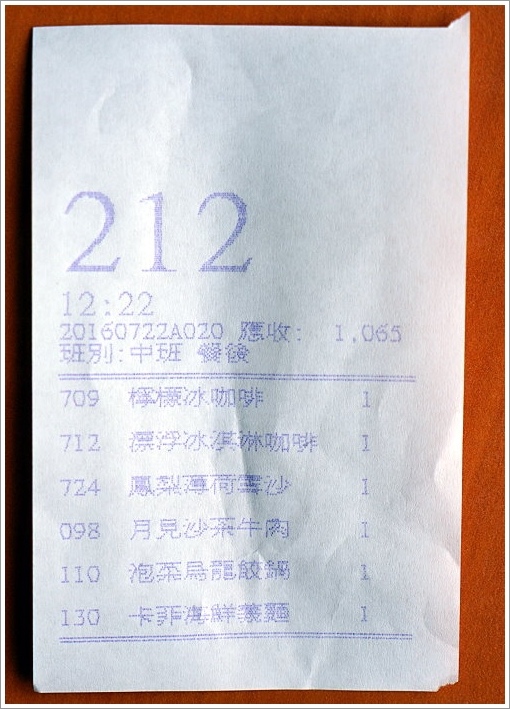 212
12:22
20160722A020 應收: 1,065
班別:中班 餐後
709 檸檬冰咖啡 1
712 漂浮冰淇淋咖啡 1
724 鳳梨薄荷雪沙 1
098 月見沙茶牛肉 1
110 泡菜烏龍餃鍋 1
130 卡菲海鮮義麵 1